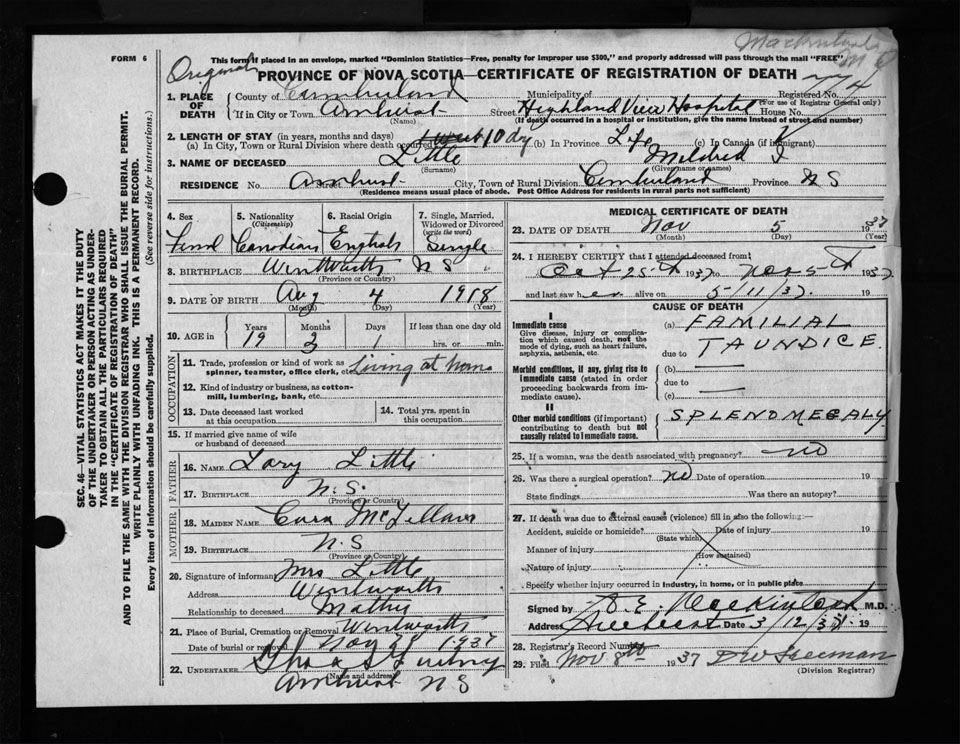 FORM 6
This form if placed in an envelope, marked "Dominion Statistics—Free, penalty for improper use $300," and properly addressed will pass through the mail "FREE"
Original
PROVINCE OF NOVA SCOTIA—CERTIFICATE OF REGISTRATION OF DEATH
1. PLACE OF DEATH
County of Cumberland Municipality of Registered No.
(For use of Registrar General only)
If in City or Town Amherst Street Highland View Hospital House No.
(Name) (If death occurred in a hospital or institution, give the name instead of street and number)
2. LENGTH OF STAY (in years, months and days)
(a) In City, Town or Rural Division where death occurred 1 week 10 dy (b) In Province Life (c) In Canada (if immigrant)
3. NAME OF DECEASED Little Mildred I
(Surname) (Given name or names)
RESIDENCE No. Amherst City, Town or Rural Division Cumberland Province N S
(Residence means usual place of abode. Post Office Address for residents in rural parts not sufficient)
SEC. 46—VITAL STATISTICS ACT MAKES IT THE DUTY
OF THE UNDERTAKER OR PERSON ACTING AS UNDER-
TAKER TO OBTAIN ALL THE PARTICULARS REQUIRED
IN THE "CERTIFICATE OF REGISTRATION OF DEATH"
AND TO FILE THE SAME WITH THE DIVISION REGISTRAR WHO SHALL ISSUE THE BURIAL PERMIT.
WRITE PLAINLY WITH UNFADING INK. THIS IS A PERMANENT RECORD.
Every item of information should be carefully supplied. (See reverse side for instructions.)
4. Sex
5. Nationality
(Citizenship)
6. Racial Origin
7. Single, Married, Widowed or Divorced
(write the word)
Canadian English Single
8. BIRTHPLACE Wentworth N S
(Province or Country)
9. DATE OF BIRTH Aug 4 1918
(Month) (Day) (Year)
10. AGE in Years Months Days If less than one day old
19 3 1 hrs. or min.
OCCUPATION
11. Trade, profession or kind of work as spinner, teamster, office clerk, etc. Living at home
12. Kind of industry or business, as cotton-mill, lumbering, bank, etc.
13. Date deceased last worked at this occupation
14. Total yrs. spent in this occupation
15. If married give name of wife or husband of deceased
FATHER
16. NAME Little
17. BIRTHPLACE N.S.
(Province or Country)
MOTHER
18. MAIDEN NAME
19. BIRTHPLACE N.S
(Province or Country)
20. Signature of informant Mrs Little
Address Wentworth
Relationship to deceased Mother
21. Place of Burial, Cremation or Removal Wentworth
Date of burial or removal Nov 1937
22. UNDERTAKER
(Name and address)
Amherst N S
MEDICAL CERTIFICATE OF DEATH
23. DATE OF DEATH Nov 5 1937
(Month) (Day) (Year)
24. I HEREBY CERTIFY that I attended deceased from
Oct 25th 1937 to Nov 5th 1937
and last saw her alive on 5/11/37. 19
CAUSE OF DEATH
I
Immediate cause
Give disease, injury or complication which caused death, not the mode of dying, such as heart failure, asphyxia, asthenia, etc.
(a) FAMILIAL
due to JAUNDICE.
Morbid conditions, if any, giving rise to immediate cause (stated in order proceeding backwards from immediate cause).
(b)
due to
(c)
II
Other morbid conditions (if important) contributing to death but not causally related to immediate cause.
SPLENOMEGALY
25. If a woman, was the death associated with pregnancy? no
26. Was there a surgical operation? no Date of operation 19
State findings Was there an autopsy?
27. If death was due to external causes (violence) fill in also the following:—
Accident, suicide or homicide? Date of injury 19
(State which)
Manner of injury
(How sustained)
Nature of injury
Specify whether injury occurred in industry, in home, or in public place
Signed by M.D.
Address Amherst Date 3/12/37. 19
28. Registrar's Record Number
29. Filed Nov 8th 1937
(Division Registrar)